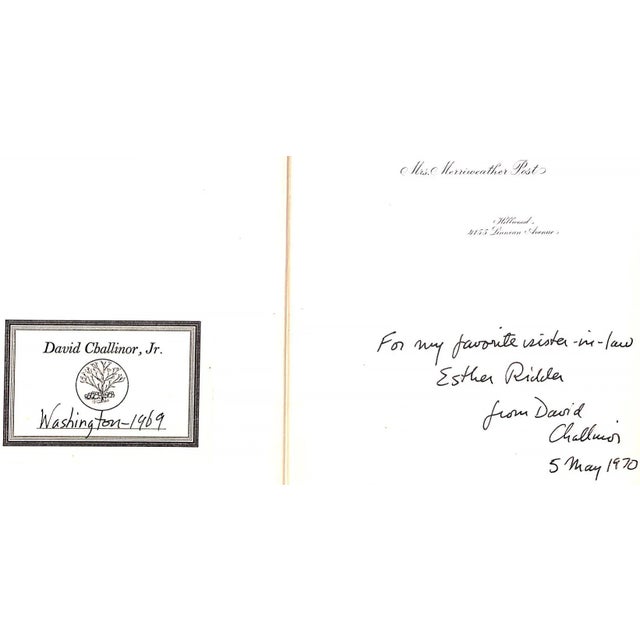 David Challinor, Jr.
Washington-1969
Mrs. Merriweather Post
Hillwood
4155 Linnean Avenue
For my favorite sister-in-law
Esther Ridder
from David
Challinor
5 May 1970